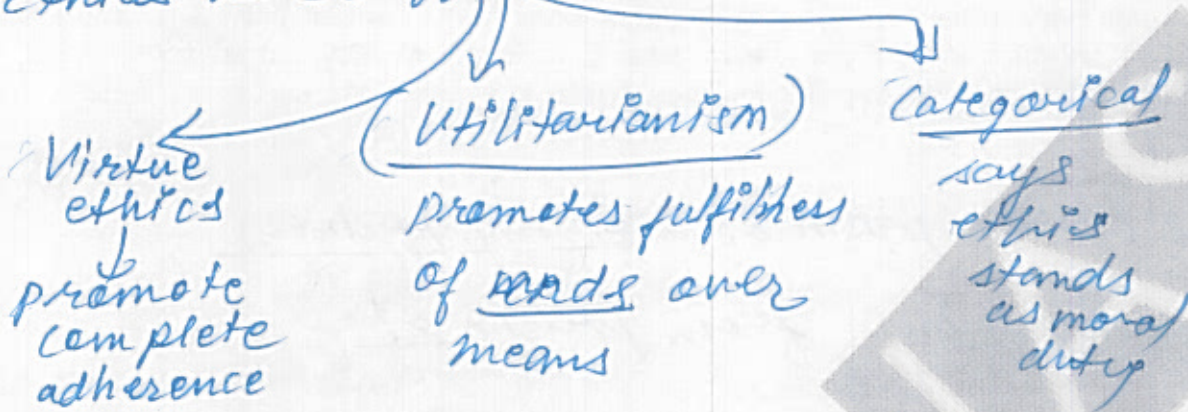 Virtue
ethics
promote
complete
adherence
(Utilitarianism)
promotes
of ends over
means
Categorical
says
ethics
stands
as moral
duty